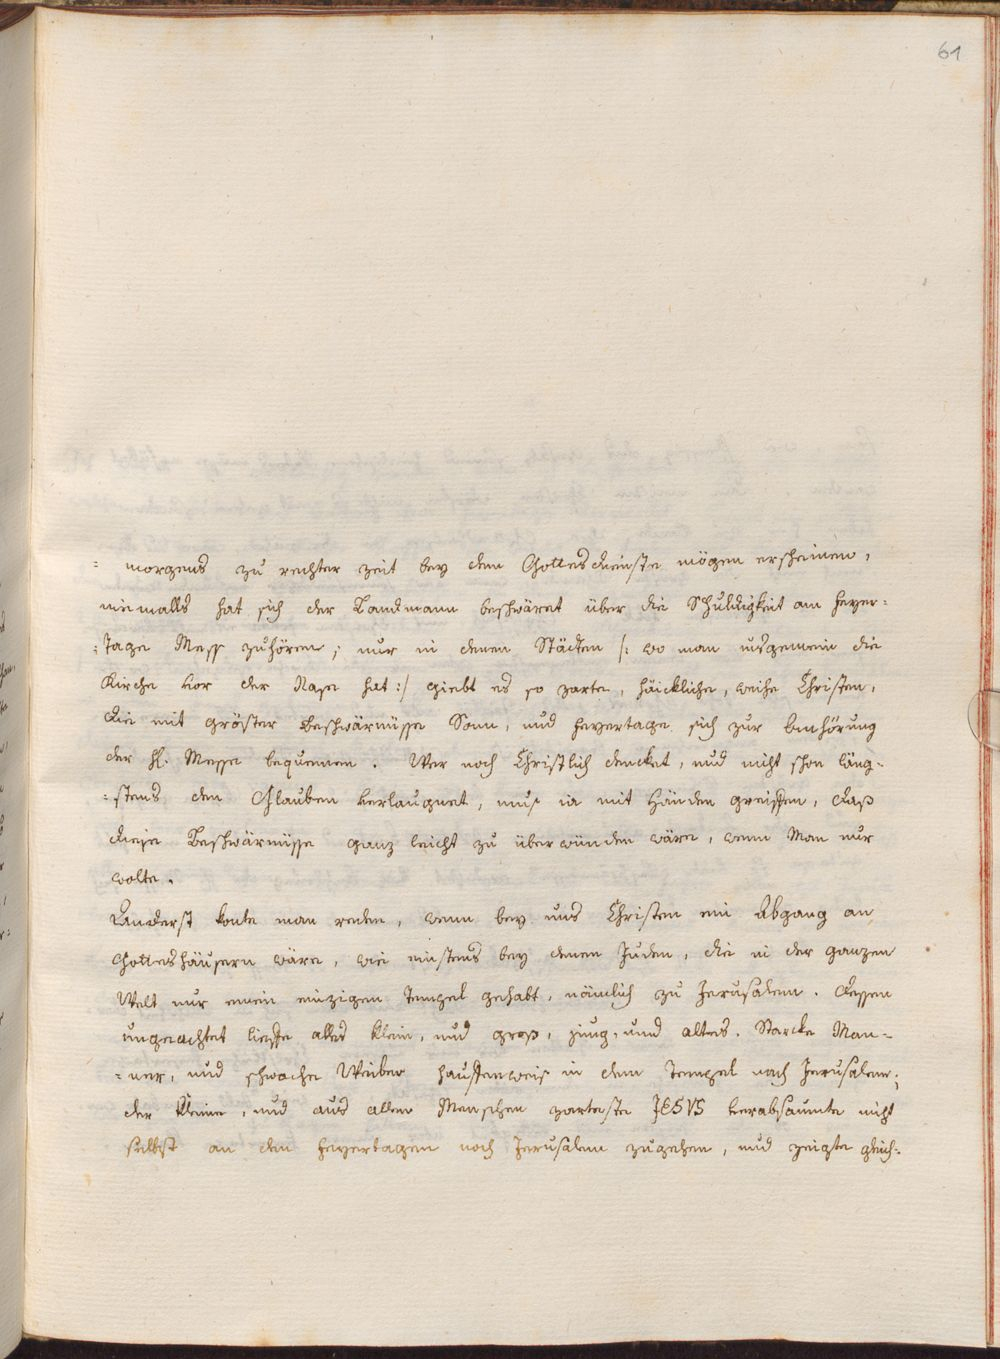 61
= morgens zu rechter zeit bey dem Gottesdienste mögen erscheinen,
niemalls hat sich der Landmann beschwäret über die Schuldigkeit am feyer=
=tage Mess zuhören; nur in denen Städten /: wo man insgemein die
Kirche vor der Nase hat :/ giebt es so zarte, häickliche, weihe Christen,
die mit gröster beschwärnüsse Sonn, und feyertage sich zur beyhörung
der hl. Messe bequemen. Wer noch Christlich dencket, und nicht schon läng=
=stens den Glauben verlaugnet, mus ia mit Händen greiffen, daß
diese Beschwärnüsse ganz leicht zu überwünden wäre, wenn Man nur
wolte.
Anderst konte man reden, wenn bey uns Christen ein Abgang an
Gotteshäusern wäre, wie einstens bey denen Juden, die in der ganzen
Welt nur einen einzigen Tempel gehabt, nämlich zu Jerusalem. dessen
ungeachtet lieffe alles klein, und groß, jung, und altes. Starcke Man=
=ner, und schwache Weiber hauffenweis in dem Tempel nach Jerusalem;
der kleine, und aus allen Menschen zarteste JESVS verabsaumte nicht
selbst an den feyertagen nach Jerusalem zugehen, und zeigte gleich=